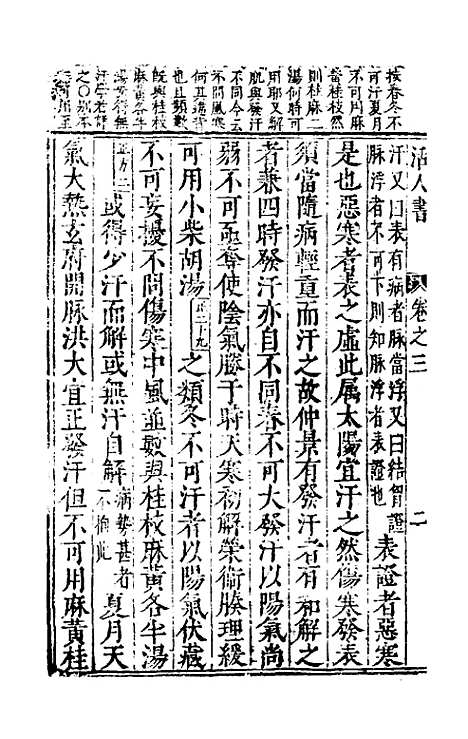 活人書 卷之三 二
按春冬不
可汗夏月
不可用麻
黃桂枝然
則桂麻二
湯何時可
用耶又解
肌與發汗
不同今云
不問風寒
何其
也且類數
旣與桂枝
麻黃各半
湯安得無
汗乎若謂
之○別本
汗又曰表有病者脉當浮又曰結胷證
脉浮者不可下則知脉浮者表證也
表證者惡寒
是也惡寒者表之虛此屬太陽宜汗之然傷寒發表
須當隨病輕重而汗之故仲景有發汗者有和解之
者兼四時發汗亦自不同春不可大發汗以陽氣尚
弱不可亟奪使陰氣勝于時天寒初解榮衞腠理緩
可用小柴胡湯正二十九之類冬不可汗者以陽氣伏藏
不可妄擾不問傷寒中風並數與桂枝麻黃各半湯
正方二或得少汗而解或無汗自解病勢甚者不拘此夏月天
氣大熱玄府開脉洪大宜正發汗但不可用麻黃桂